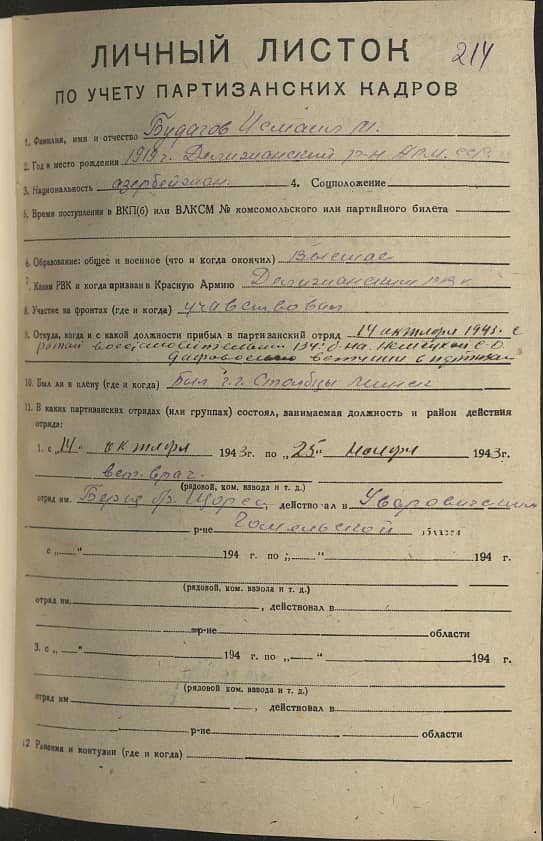 ЛИЧНЫЙ ЛИСТОК
214
ПО УЧЕТУ ПАРТИЗАНСКИХ КАДРОВ
1. Фамилия, имя и отчество Будагов Исмаил М.
2. Год и место рождения 1919 г. Делижанский р-н Арм. ССР.
3. Национальность азербейжан. 4. Соцположение
5. Время поступления в ВКП(б) или ВЛКСМ № комсомольского или партийного билета
6. Образование: общее и военное (что и когда окончил) Высшее
7. Каким РВК и когда призван в Красную Армию Делижанским РВК
8. Участие на фронтах (где и когда) учавствовал
9. Откуда, когда и с какой должности прибыл в партизанский отряд 14 октября 1943. с
ротой
10. Был ли в плену (где и когда) Был г.г. Столбцы Минск
11. В каких партизанских отрядах (или группах) состоял, занимаемая должность и район действия
отряда:
1. с „14" октября 1943 г. по „25" ноября 1943 г.
вет. врач.
(рядовой, ком. взвода и т. д.)
отряд им. Щорса, действовал в Уваровическом
р-не Гомельской области
с „ " 194 г. по „ " 194 г.
(рядовой, ком. взвода и т. д.)
отряд им. , действовал в
р-не области
3. с „ " 194 г. по „ " 194 г.
(рядовой ком. взвода и т. д.)
отряд им , действовал в
р-не области
12. Ранения и контузии (где и когда)